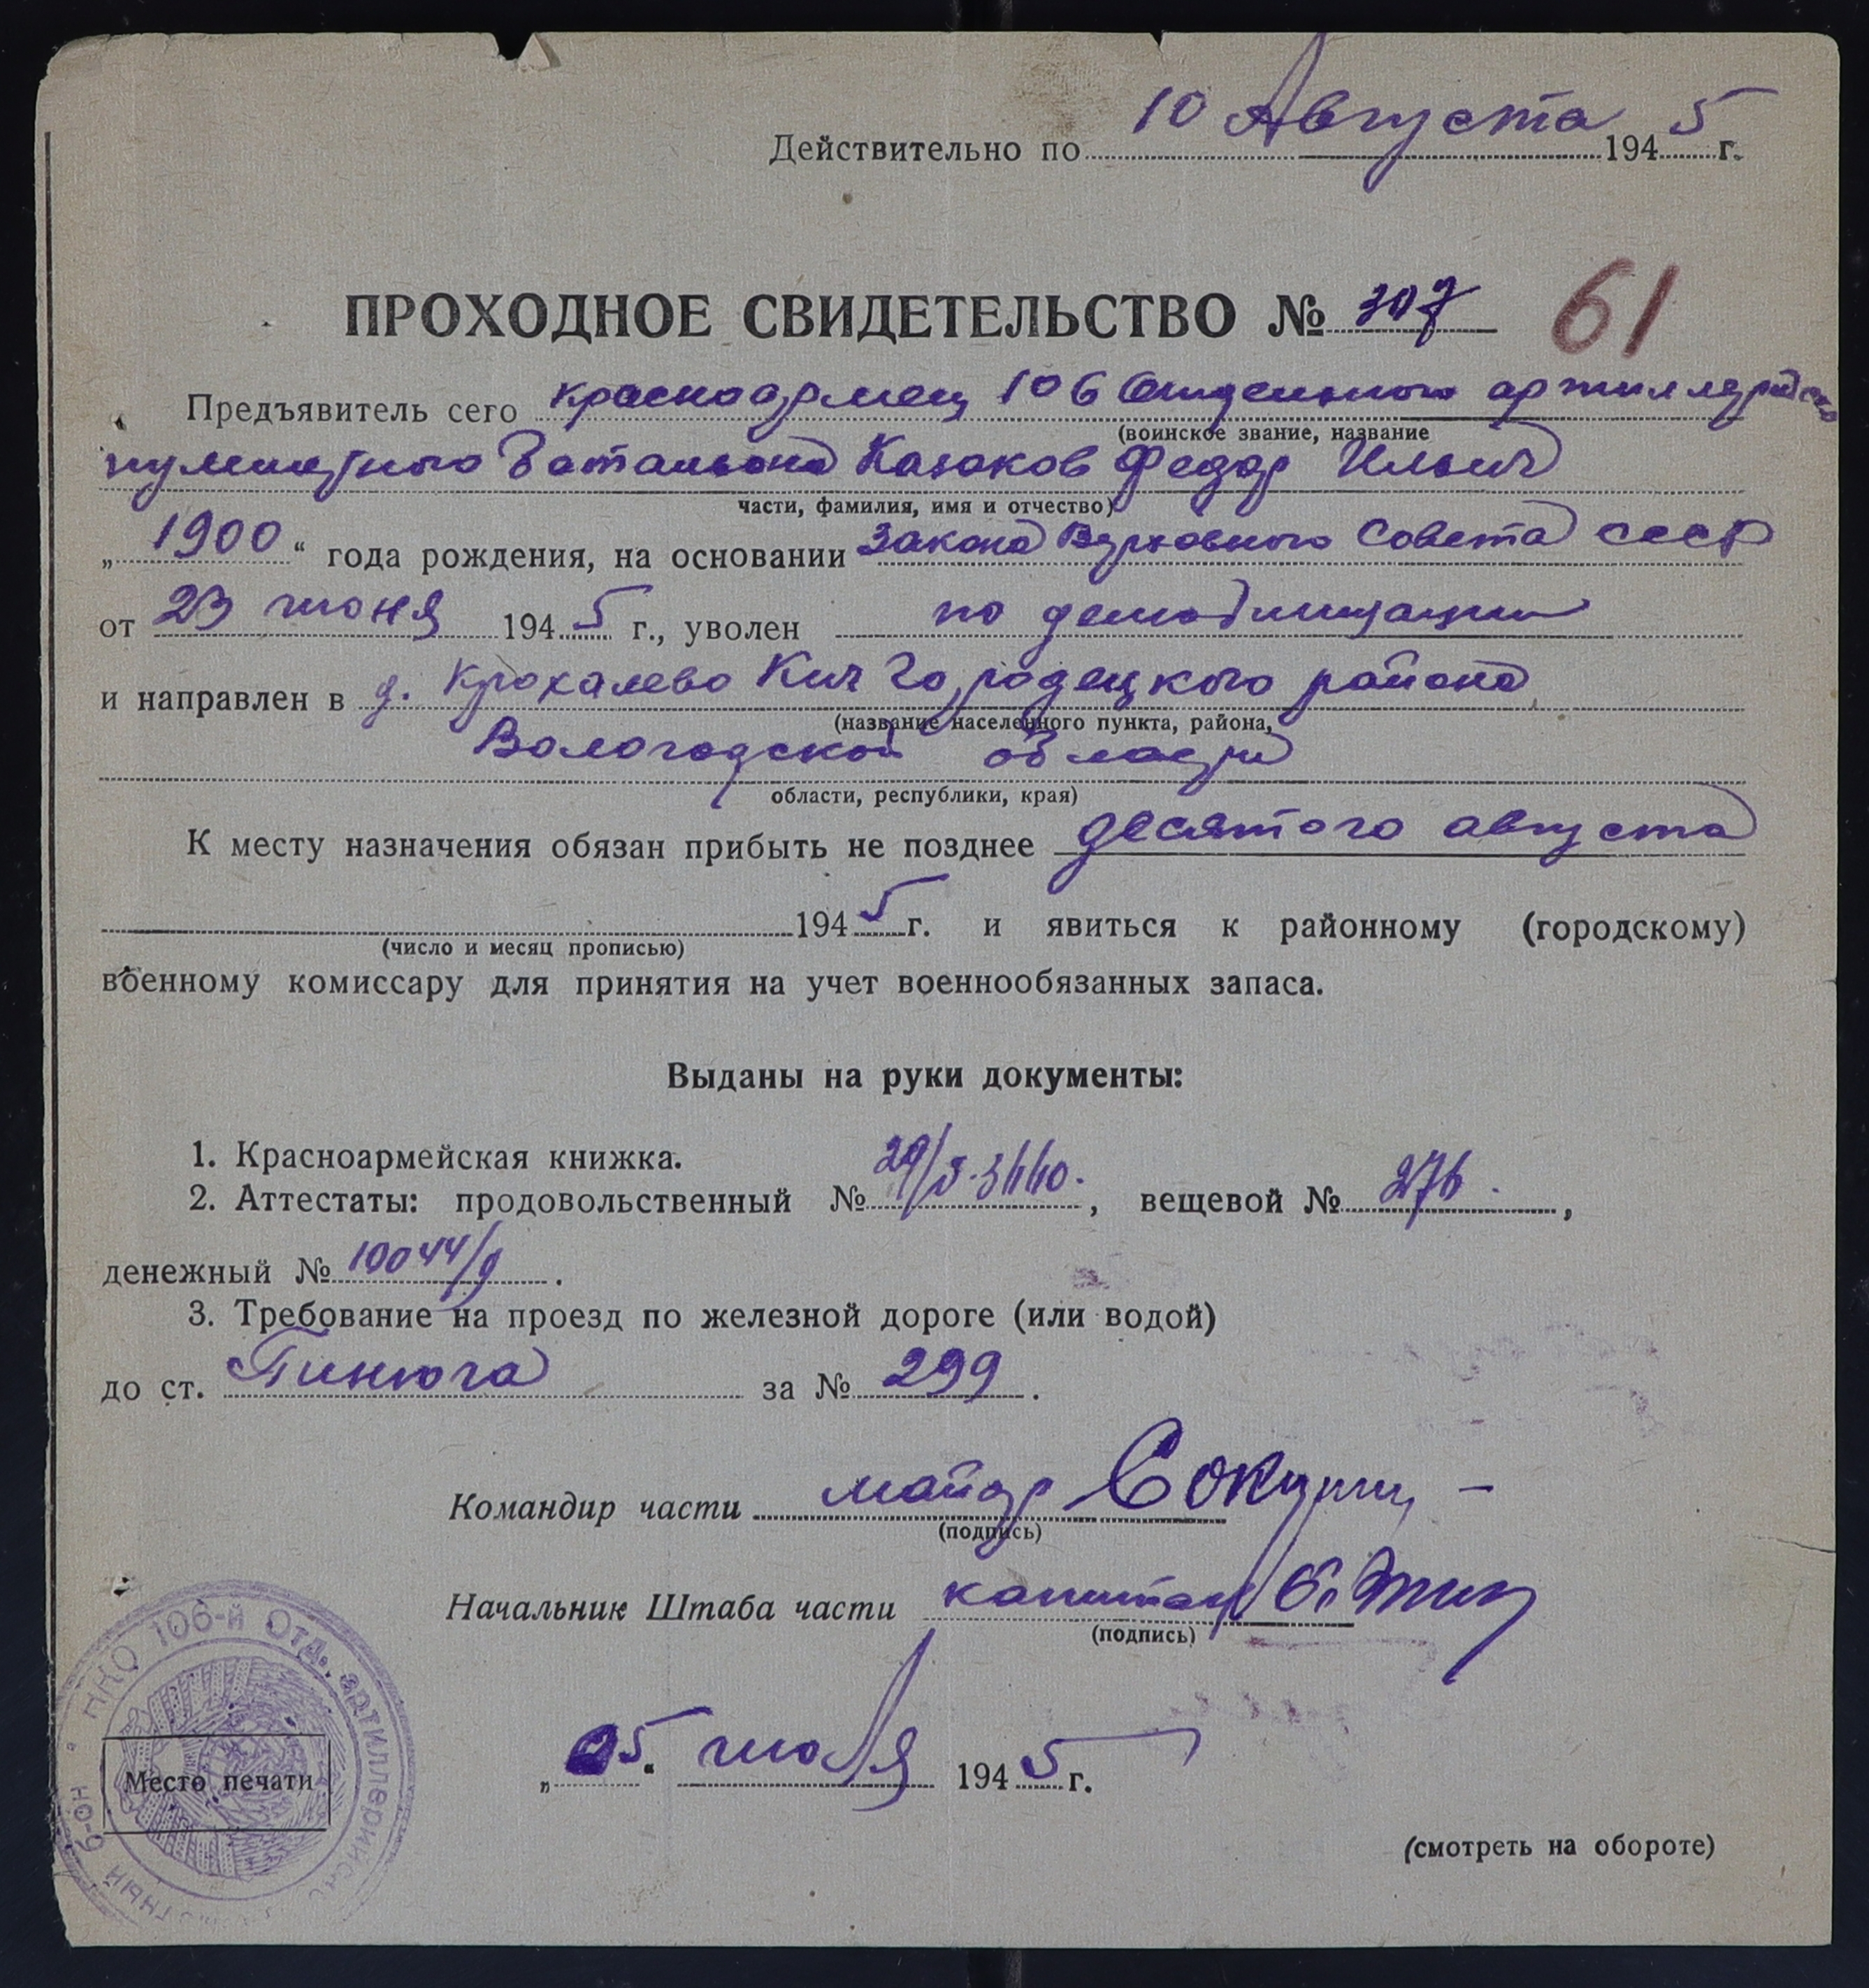 Действительно по 10 Августа 1945 г.
ПРОХОДНОЕ СВИДЕТЕЛЬСТВО № 307 61
Предъявитель сего красноармеец 106 Отдельного артиллерийско
(воинское звание, название
пулеметного батальона Казаков Федор Ильич
части, фамилия, имя и отчество)
„1900“ года рождения, на основании Закона Верховного Совета СССР
от 23 июня 1945 г., уволен по демобилизации
и направлен в д. Крохалево Кич Городецкого района
(название населенного пункта, района,
Вологодской области
области, республики, края)
К месту назначения обязан прибыть не позднее десятого августа
1945 г. и явиться к районному (городскому)
(число и месяц прописью)
военному комиссару для принятия на учет военнообязанных запаса.
Выданы на руки документы:
1. Красноармейская книжка.
2. Аттестаты: продовольственный № , вещевой № 276.,
денежный № 10044/9.
3. Требование на проезд по железной дороге (или водой)
до ст. Пинюга за № 299.
Командир части майор
(подпись)
Начальник Штаба части капитан
(подпись)
НКО 106-й Отд. артиллерийск
Место печати
„05“ июля 1945 г.
(смотреть на обороте)